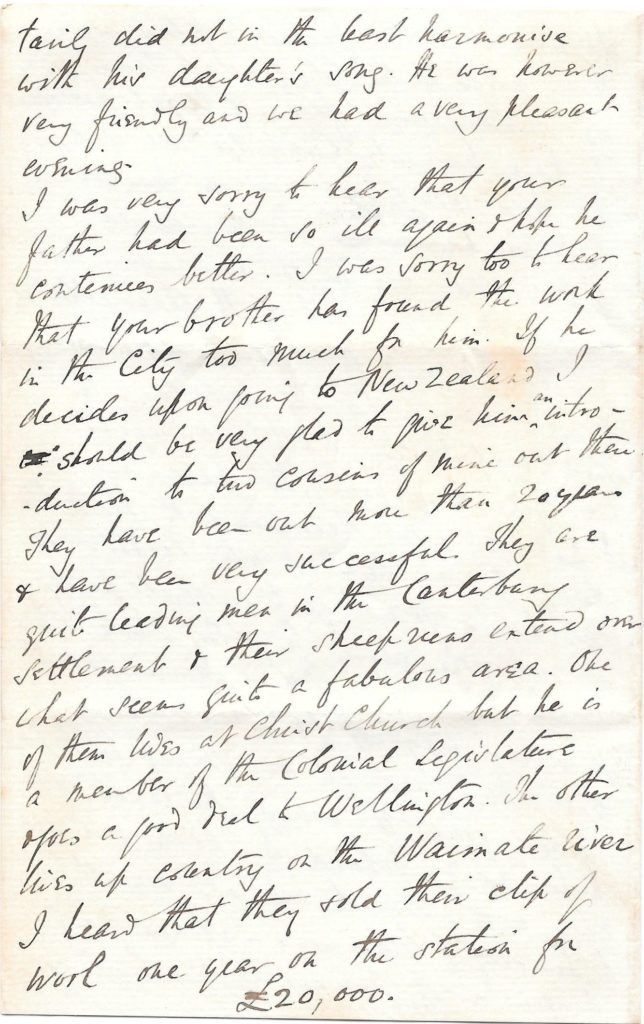 tainly did not in the least harmonise
with his daughter's song. He was however
very friendly and we had a very pleasant
evening.
I was very sorry to hear that your
father had been so ill again & hope he
continues better. I was sorry too to hear
that your brother has found the work
in the City too much for him. If he
decides upon going to New Zealand I
should be very glad to give him an intro-
-duction to two cousins of mine out there.
They have been out more than 20 years
& have been very successful. They are
quite leading men in the Canterbury
settlement & their sheep runs extend over
what seems quite a fabulous area. One
of them lives at Christ Church but he is
a member of the Colonial Legislature
& goes a good deal to Wellington. The other
lives up country on the Waimate river
I heard that they sold their clip of
wool one year on the station for
£20,000.